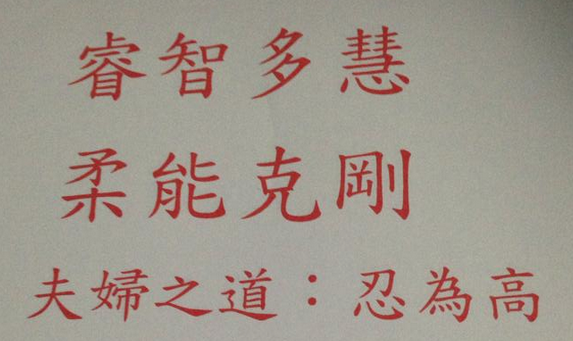 睿智多慧
柔能克剛
夫婦之道：忍為高